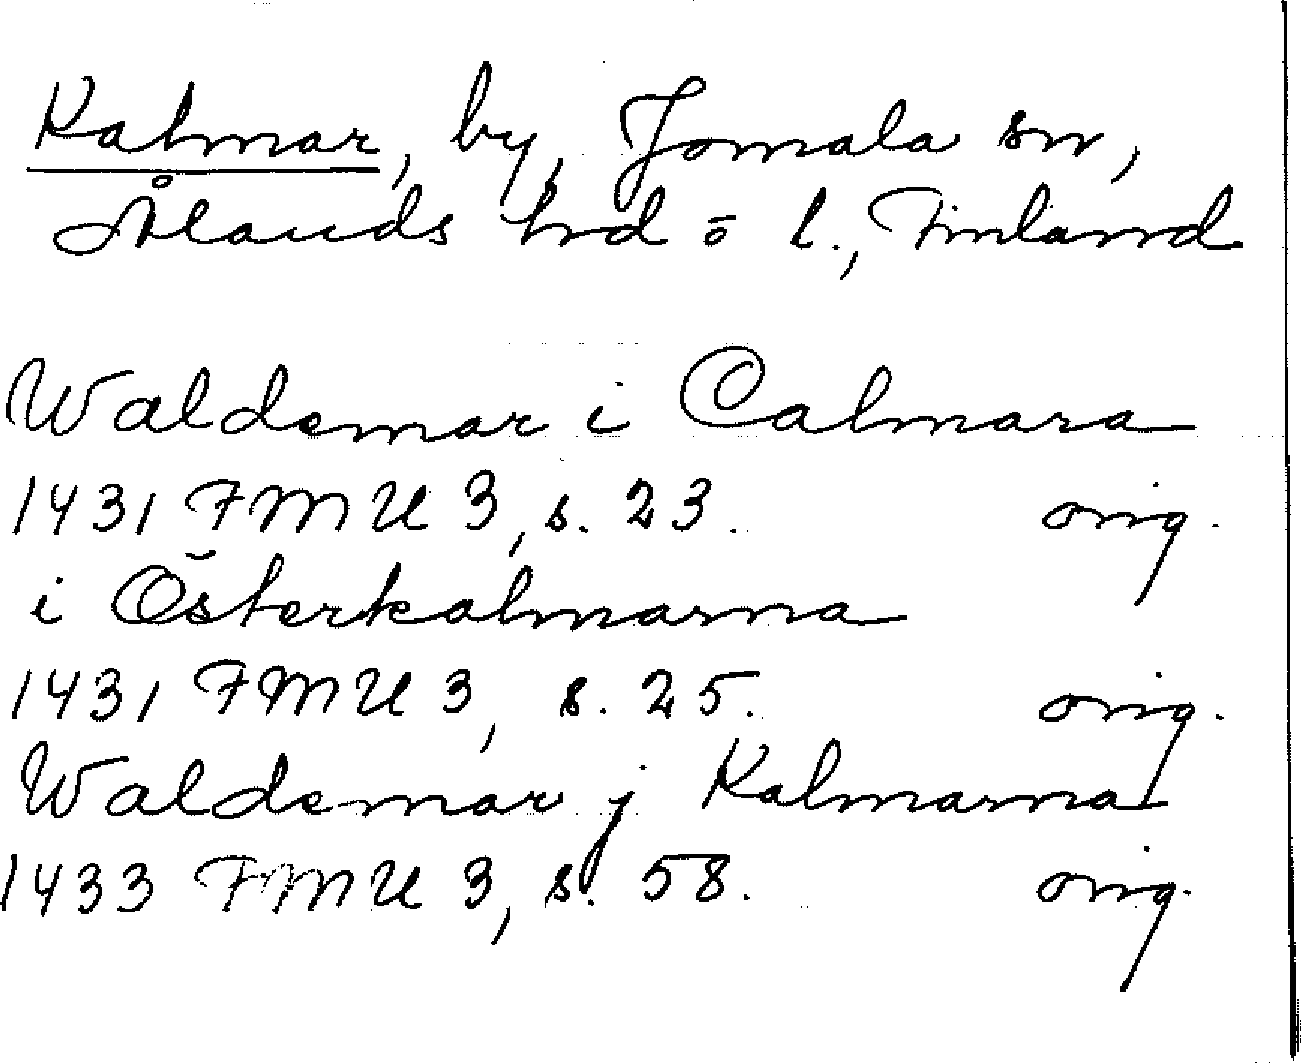 Kalmar, by, Jomala sn,
Ålands hrd o l., Finland
Waldemar i Calmara
1431 FMU 3, s. 23. orig.
i Österkalmarna
1431 FMU 3, s. 25. orig.
Waldemar j Kalmarna
1433 FMU 3, s. 58. orig.